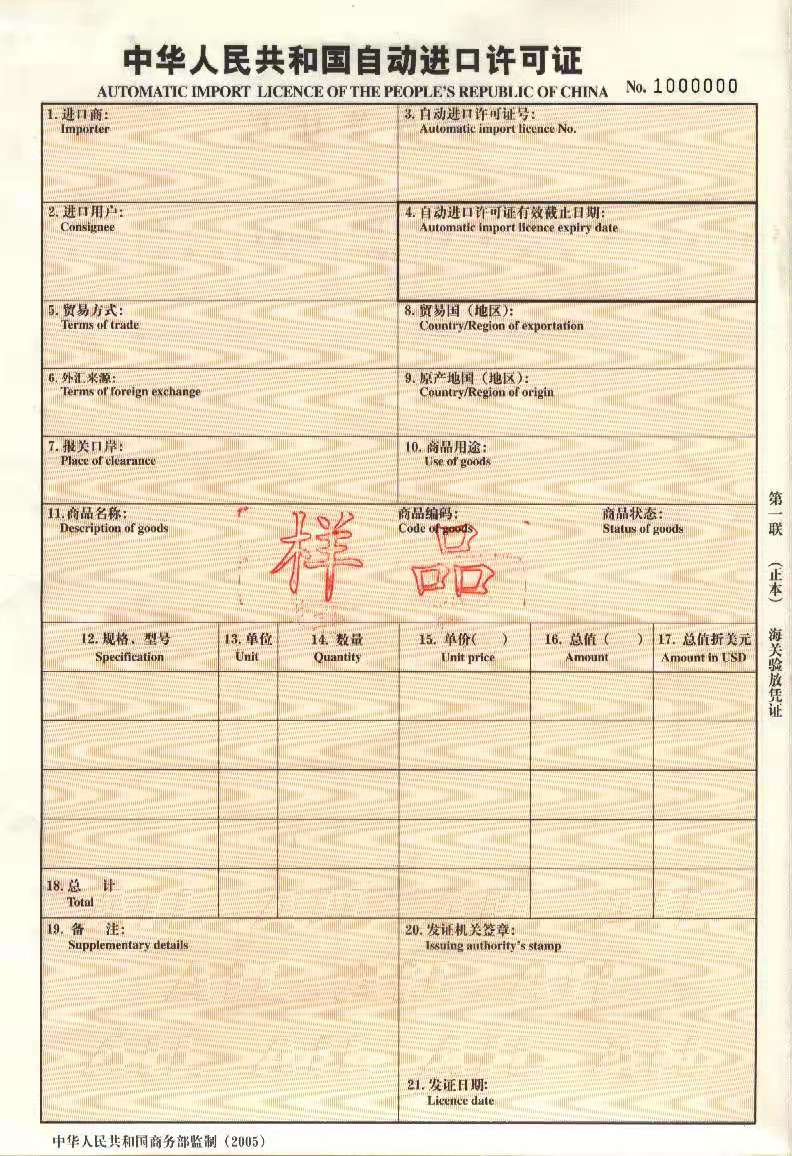 中华人民共和国自动进口许可证
AUTOMATIC IMPORT LICENCE OF THE PEOPLE'S REPUBLIC OF CHINA No. 1000000
1. 进口商:
Importer
3. 自动进口许可证号:
Automatic import licence No.
2. 进口用户:
Consignee
4. 自动进口许可证有效截止日期:
Automatic import licence expiry date
5. 贸易方式:
Terms of trade
8. 贸易国(地区):
Country/Region of exportation
6. 外汇来源:
Terms of foreign exchange
9. 原产地国(地区):
Country/Region of origin
7. 报关口岸:
Place of clearance
10. 商品用途:
Use of goods
11. 商品名称:
Description of goods
商品编码:
Code of goods
商品状态:
Status of goods
样品
12. 规格、型号
Specification
13. 单位
Unit
14. 数量
Quantity
15. 单价( )
Unit price
16. 总值( )
Amount
17. 总值折美元
Amount in USD
18. 总 计
Total
19. 备 注:
Supplementary details
20. 发证机关签章:
Issuing authority's stamp
21. 发证日期:
Licence date
第一联 (正本) 海关验放凭证
中华人民共和国商务部监制 (2005)